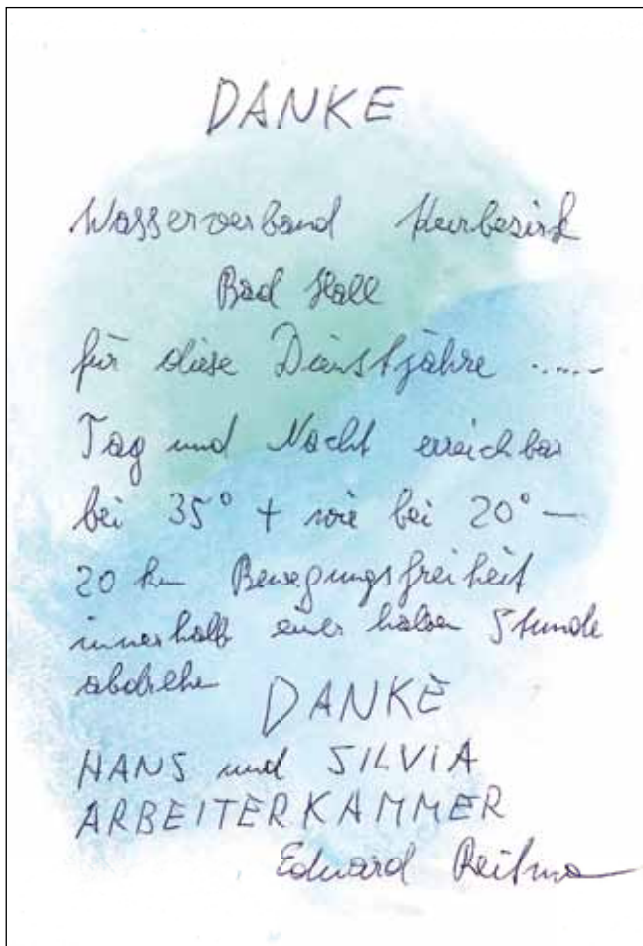 DANKE
Wasserverband Kurbezirk
Bad Hall
für diese Dienstjahre .....
Tag und Nacht erreichbar
bei 35° + wie bei 20° —
20 km Bewegungsfreiheit
innerhalb einer halben Stunde
abdrehen
DANKE
HANS und SILVIA
ARBEITERKAMMER
Eduard